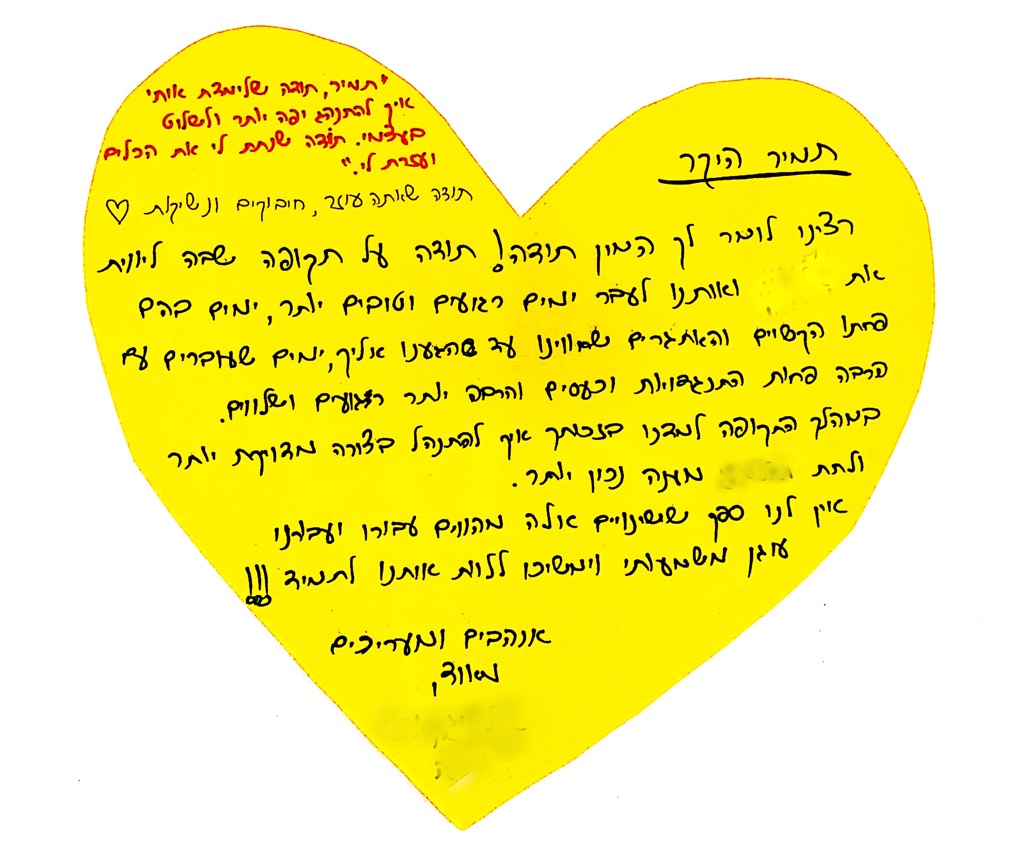 "תמיר, תודה שלימדת אותי
איך להתנהג יפה יותר ולשלוט
בעצמי. תודה שנתת לי את הכלים
ועזרת לי."
תודה שאתה עוזר, חיבוקים ונשיקות ♡
תמיר היקר
רצינו לומר לך המון תודה! תודה על תקופה שבה ליווית
את ואותנו לעבר ימים רגועים וטובים יותר, ימים בהם
פחתו הקשיים והאתגרים שחווינו עד שהגענו אליך, ימים שעוברים עם
הרבה פחות התנגדויות וכעסים והרבה יותר רגועים ושלווים.
במהלך התקופה למדנו בזכותך איך להתנהל בצורה מדויקת יותר
ולתת מענה נכון יותר.
אין לנו ספק ששינויים אלה מהווים עבורו ועבורנו
עוגן משמעותי וימשיכו ללוות אותנו לתמיד!!!
אוהבים ומעריכים
מאוד,